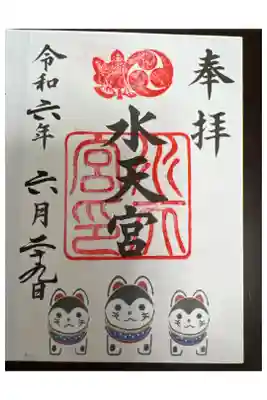 奉拝
水天宮
令和六年 六月二十九日